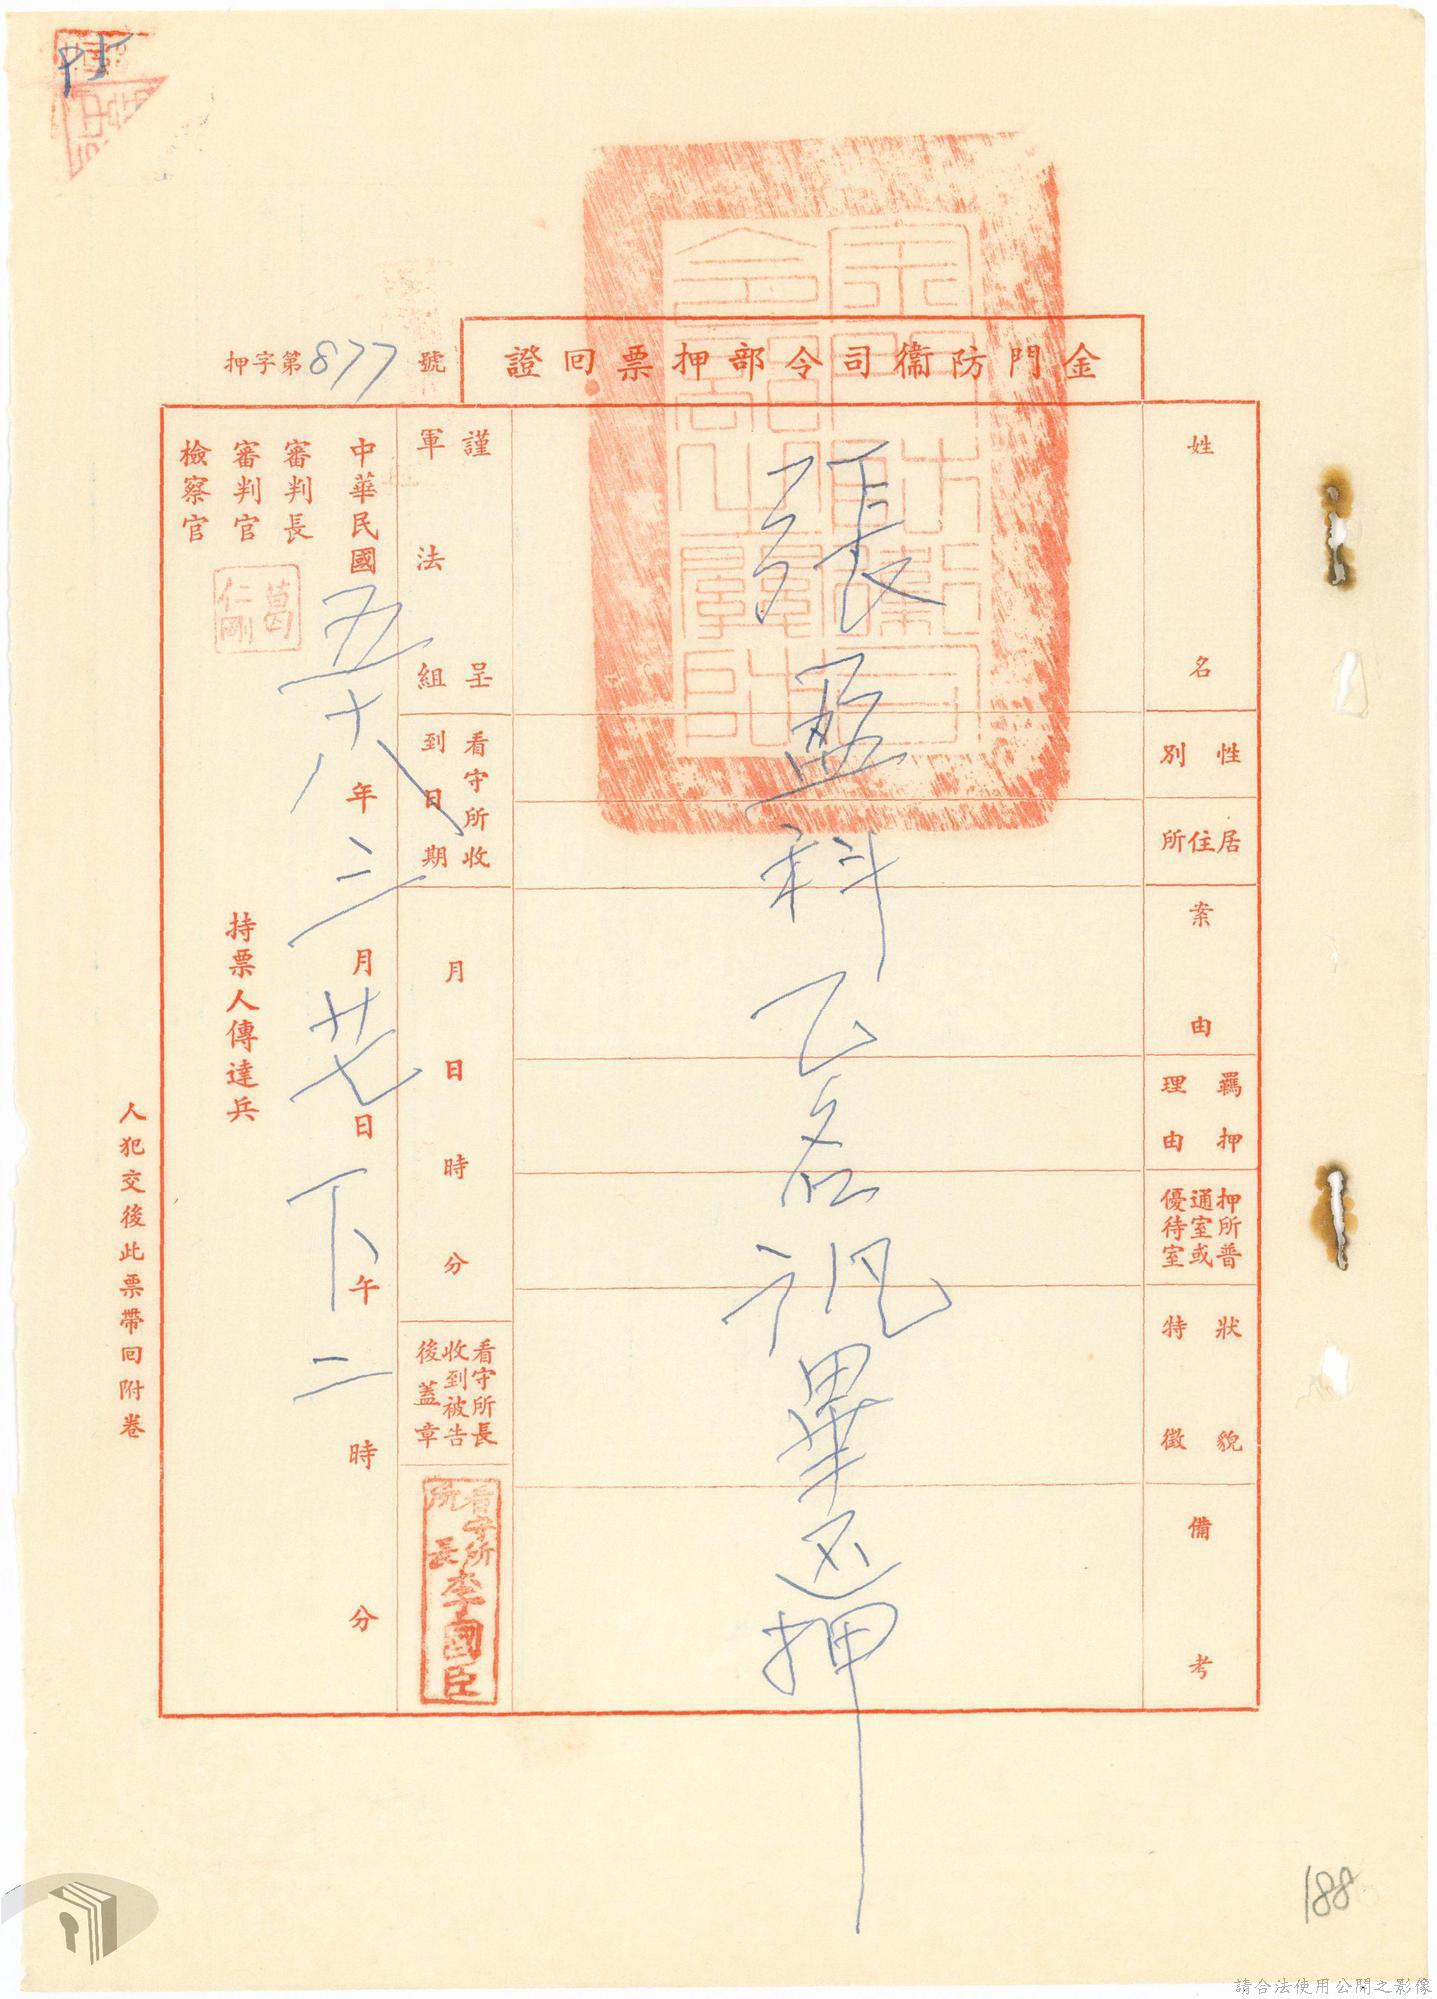 金門防衞司令部押票回證
押字第877號
姓名
性別
居住所
案由
羈押理由
押所普通室或優待室
狀貌特徵
備考
張盈科乙名訊畢還押
謹呈
軍法組
看守所收到日期
月日時分
看守所長收到被告後蓋章
看守所所長李國臣
中華民國五十八年三月廿七日下午二時分
審判長
審判官
檢察官
葛仁剛
持票人傳達兵
人犯交後此票帶回附卷
188
請合法使用公開之影像